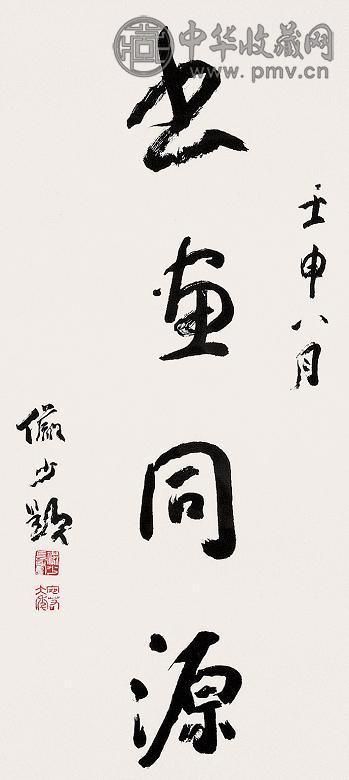 中华收藏网
www.pmv.cn
壬申八月
书画同源
俨少题